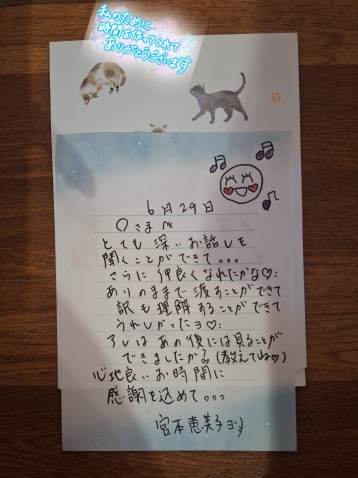 私のために
時間を作ってくれて
ありがとうございます
6月29日
○さまへ
とても深いお話しを
聞くことができて。。。
さらに仲良くなれたかな♡
ありのままで渡すことができて
訳も理解することができて
うれしかったョ♡
アレはあの後には見ることが
できましたか？(教えてね♡)
心地良いお時間に
感謝を込めて。。。
宮本恵美子